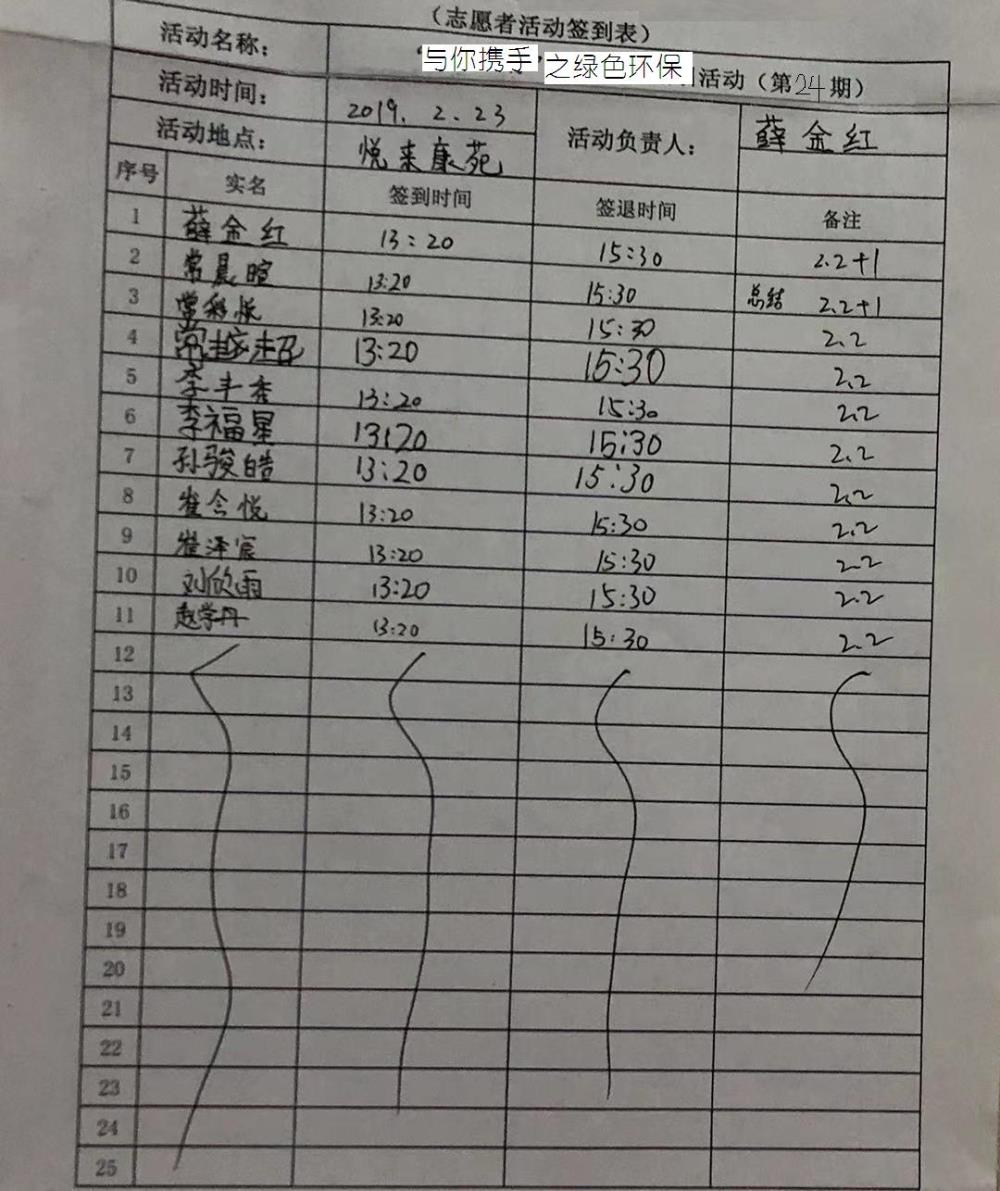 （志愿者活动签到表）
活动名称： 与你携手 之绿色环保 活动（第24期）
活动时间： 2019. 2. 23 活动负责人： 薛金红
活动地点： 悦来康苑
序号 实名 签到时间 签退时间 备注
1 薛金红 13:20 15:30 2.2+1
2 常晨暄 13:20 15:30 总结 2.2+1
3 常 13:20 15:30 2.2
4 常越超 13:20 15:30 2.2
5 李丰秀 13:20 15:30 2.2
6 李福星 13:20 15:30 2.2
7 孙骏皓 13:20 15:30 2.2
8 崔令悦 13:20 15:30 2.2
9 崔泽宸 13:20 15:30 2.2
10 刘欣雨 13:20 15:30 2.2
11 赵学丹 13:20 15:30 2.2
12
13
14
15
16
17
18
19
20
21
22
23
24
25